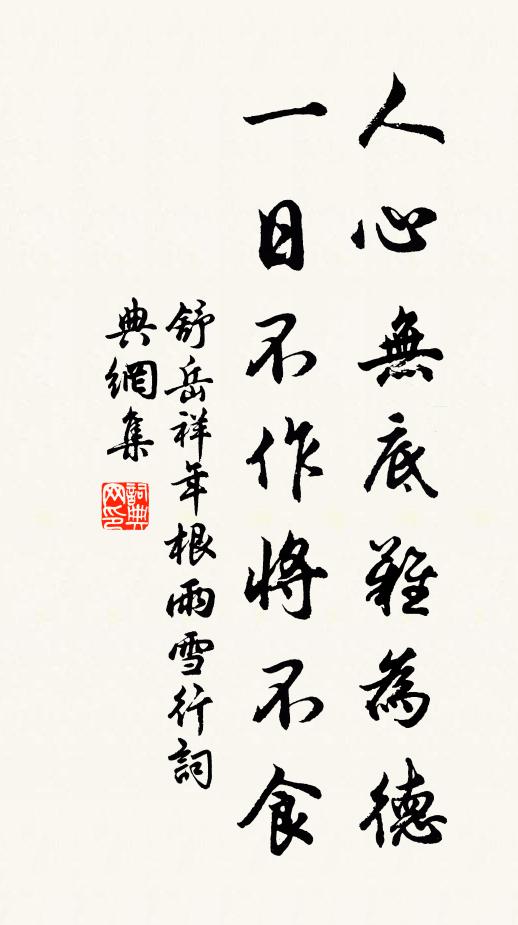 人心無底難為德
一日不作將不食
舒岳祥年根雨雪行詞
典網集
詞典
网印